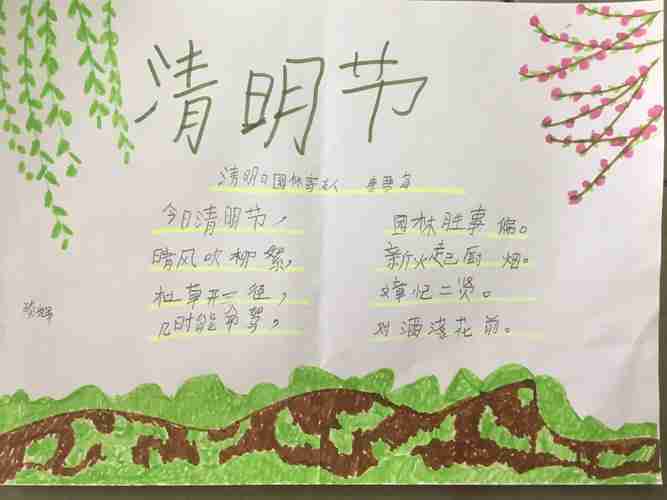 清明节
清明日园林寄友人
今日清明节，
园林胜事偏。
晴风吹柳絮，
新火起厨烟。
杜草开三径，
章忆二贤。
几时能命驾，
对酒落花前。